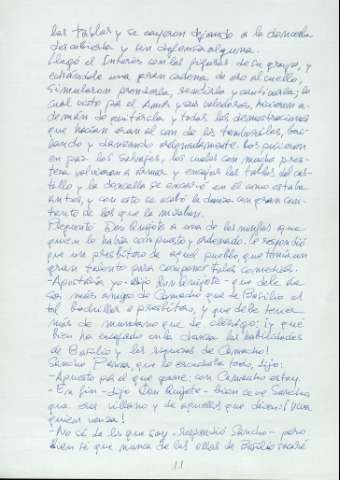 las tablas y se cayeron dejando a la doncella
descubierta y sin defensa alguna.
Llegó el Interés con las figuras de su grupo, y
echándole una gran cadena de oro al cuello,
simularon prenderla, rendirla y cautivarla; lo
cual visto por el Amor y sus valedores, hicieron a-
demán de quitársela y todas las demostraciones
que hacían eran al son de los tamboriles, bai-
lando y danzando Los pusieron
en paz los salvajes, los cuales con mucha pres-
teza volvieron a armar y encajar las tablas del cas-
tillo y la doncella se encerró en él como estaba
antes, y con esto se acabó la danza con gran con-
tento de los que la miraban.
Preguntó Don Quijote a una de las ninfas que
quien lo había compuesto y ordenado. Le respondió
que un presbítero de aquel pueblo, que tenía un
gran talento para componer tales comedias.
-Apostaría yo -dijo Don Quijote- que debe de
ser más amigo de Camacho que de Basilio el
tal bachiller o presbítero, y que debe tener
más de mundano que de clérigo: ¡y que
bien ha encajado en la danza las habilidades
de Basilio y las riquezas de Camacho!
Sancho Panza, que lo escuchaba todo, dijo:
-Apuesto por el que gane: con Camacho estoy.
-En fin -dijo Don Quijote- bien se ve Sancho
que eres villano y de aquellos que dicen: ¡Viva
quien venza!
-No sé de los que soy -respondió Sancho- pero
bien sé que nunca de las ollas de Basilio sacaré
11